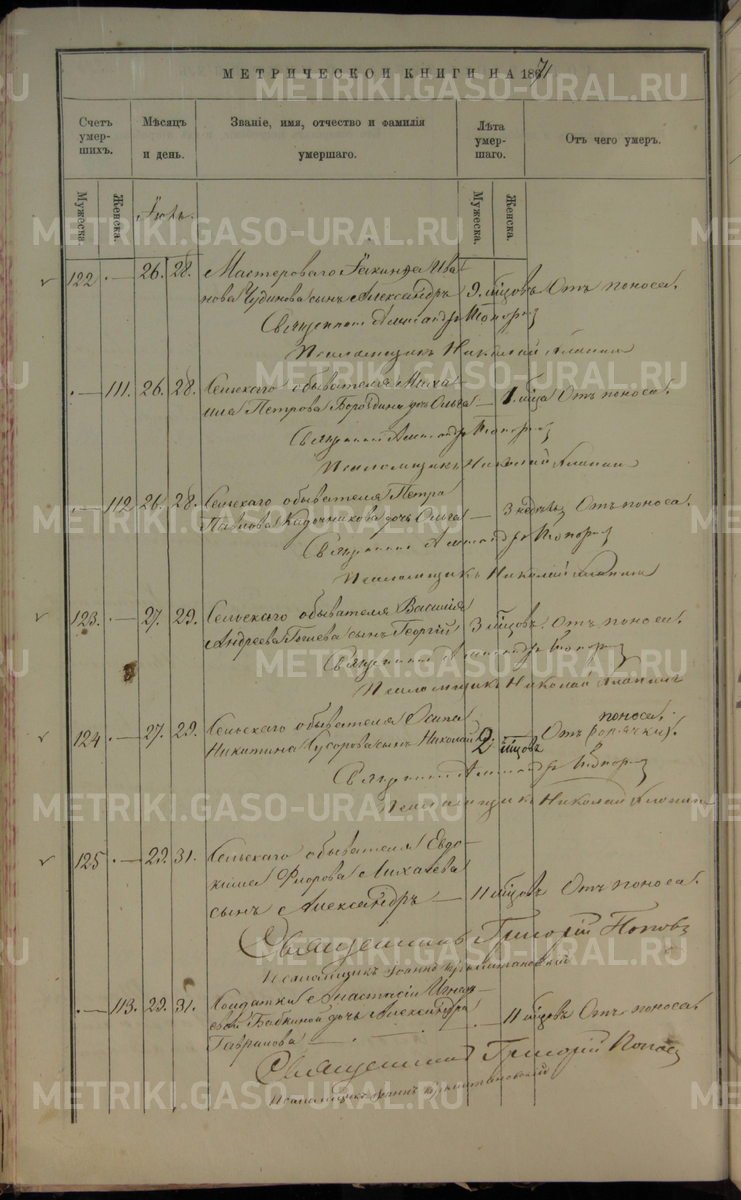 МЕТРИЧЕСКОЙ КНИГИ НА 1871
Счетъ умер-шихъ.
Мѣсяцъ и день.
Званіе, имя, отчество и фамилія умершаго.
Лѣта умер-шаго.
Отъ чего умеръ.
Мужеска.
Женска.
Мужеска.
Женска.
122 26. 28. Мастероваго Іакинфа Ива
нова Чудинова сынъ Александръ 9. мѣсяцовъ Отъ поноса.
Священникъ Александръ Топорк
Псаломщикъ Николай
111. 26. 28. Сельскаго обывателя Миха
ила Петрова Бороздина дочь Ольга 1. мѣсяца Отъ поноса.
Священникъ Александръ
Псаломщикъ Николай
112 26. 28. Сельскаго обывателя Петра
Павлова Кадочникова дочь Ольга 3 недѣль Отъ поноса.
Священникъ Александръ
Псаломщикъ Николай
123. 27. 29. Сельскаго обывателя Василія
Андреева сынъ Георгій 3 мѣсяцовъ Отъ поноса.
Священникъ Александръ
Псаломщикъ Николай
124 27. 29. Сельскаго обывателя Осипа поноса.
Никитина сынъ Николай 2 мѣсяцовъ Отъ горячки.
Священникъ Александръ
Псаломщикъ Николай
125 29. 31. Сельскаго обывателя Евдо-
кима Флорова Михалева
сынъ Александръ 11 мѣсяцовъ Отъ поноса.
Священникъ Григорій Поповъ
Псаломщикъ Іоаннъ
113. 29. 31. Солдатки Анастасіи Игнать
евой Бабкиной дочь Александра 11 мѣсяцовъ Отъ поноса.
Гаврилова
Священникъ Григорій Поповъ
Псаломщикъ Іоаннъ
METRIKI.GASO-URAL.RU